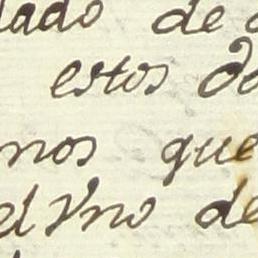 lado de
estos
nos que
el Vno de